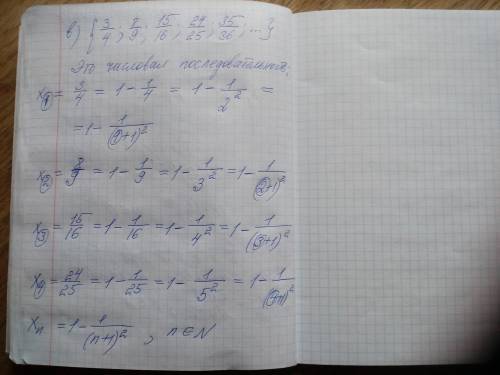 в) { 3/4 ; 8/9 ; 15/16 ; 24/25 ; 35/36 ; ... }
Это числовая последовательность:
x₁ = 3/4 = 1 - 1/4 = 1 - 1/2² =
= 1 - 1/(1+1)²
x₂ = 8/9 = 1 - 1/9 = 1 - 1/3² = 1 - 1/(2+1)²
x₃ = 15/16 = 1 - 1/16 = 1 - 1/4² = 1 - 1/(3+1)²
x₄ = 24/25 = 1 - 1/25 = 1 - 1/5² = 1 - 1/(4+1)²
xₙ = 1 - 1/(n+1)² , n ∈ N